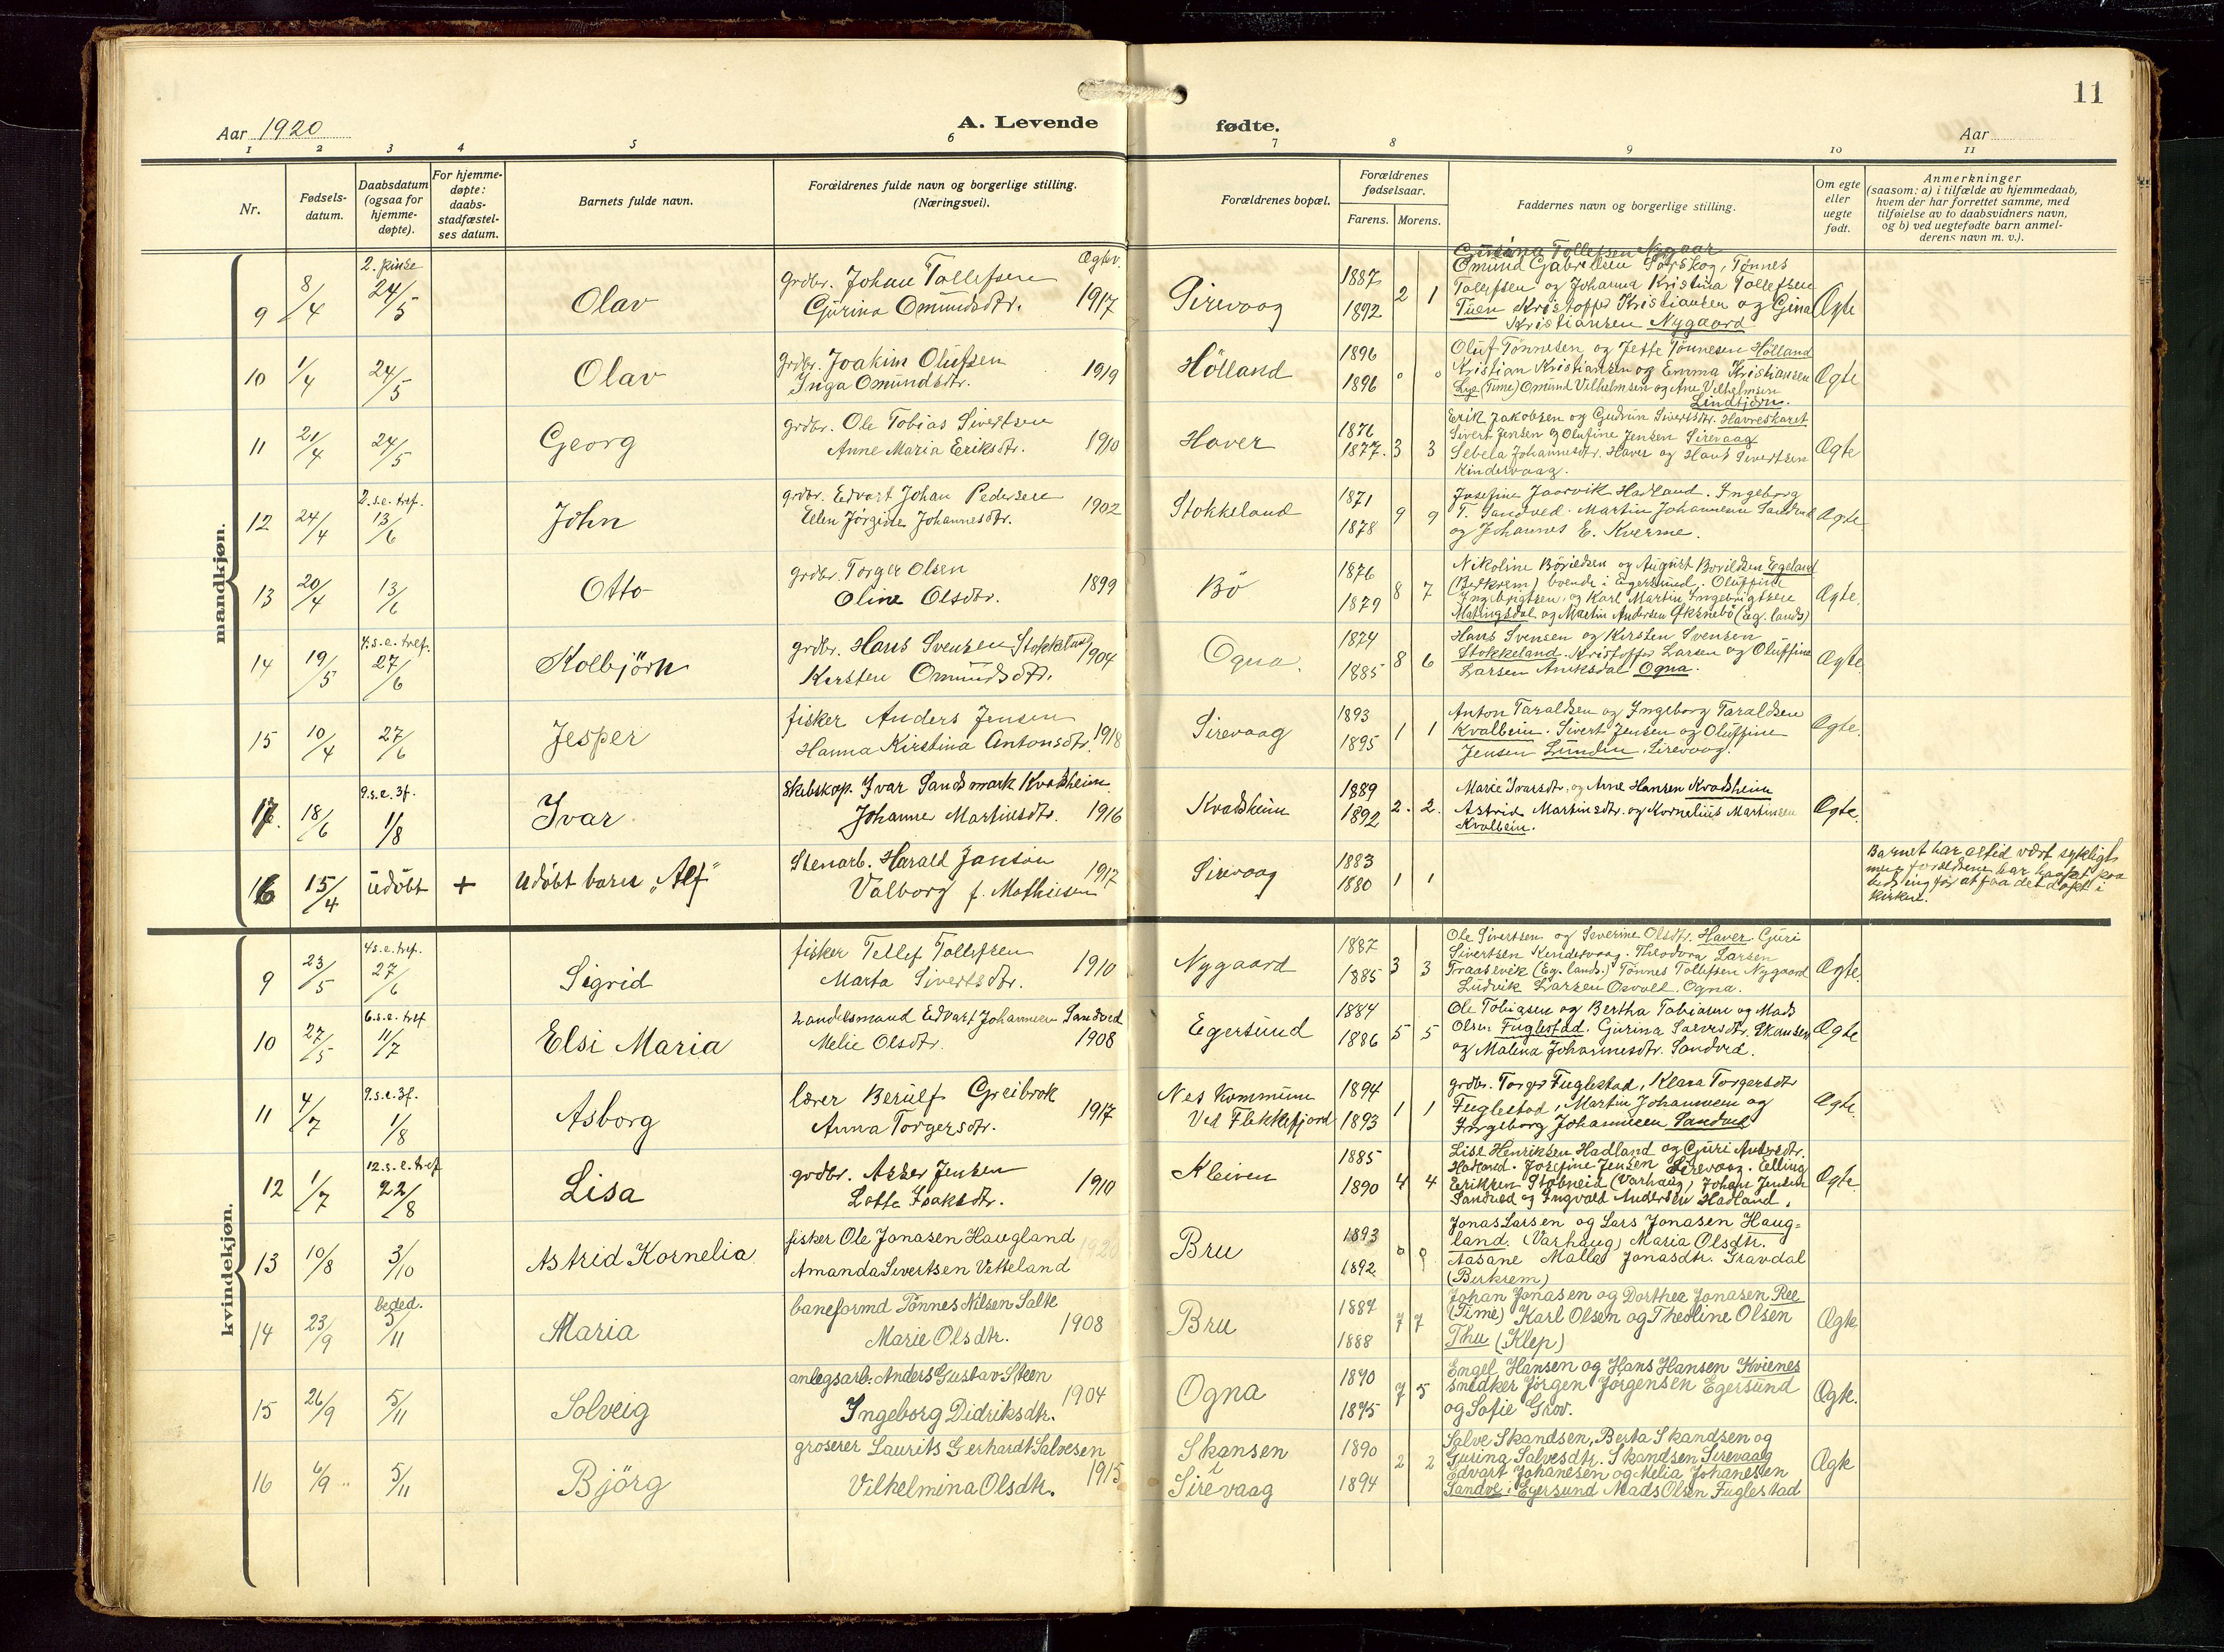 11
Aar 1920
A. Levende
fødte.
Aar
1 2 3 4 5 6 7 8 9 10 11
Nr.
Fødsels-
datum.
Daabsdatum
(ogsaa for
hjemme-
døpte).
For hjemme-
døpte:
daabs-
stadfæstel-
ses datum.
Barnets fulde navn.
Forældrenes fulde navn og borgerlige stilling.
(Næringsvei).
Forældrenes bopæl.
Forældrenes
fødselsaar.
Farens. Morens.
Faddernes navn og borgerlige stilling.
Om egte
eller
uegte
født.
Anmerkninger
(saasom: a) i tilfælde av hjemmedaab,
hvem der har forrettet samme, med
tilføielse av to daabsvidners navn,
og b) ved uegtefødte barn anmel-
derens navn m. v.).
mandkjøn.
9 8/4 2. pinse 24/5 Olav
grdbr. Johan Tollefsen Ægtev.
Gurina Omundsdtr. 1917
Sirevaag 1887 1892 2 1
Gurina Tollefsen Nygaar
Omund Gabrielsen Torskog, Tønnes
Tollefsen og Johanna Kristina Tollefsen
Tuen Kristoffer Kristiansen og Gina
Kristiansen Nygaard
Ægte
10 1/4 24/5 Olav
grdbr. Joakim Olufsen
Inga Omundsdtr. 1919
Hölland 1896 1896 0 0
Oluf Tönnesen og Jette Tönnesen Hölland
Kristian Kristiansen og Emma Kristiansen
Lye (Time) Omund Vilhelmsen og Ane Vilhelmsen
Lindtjörn.
Ægte
11 21/4 24/5 Georg
grdbr. Ole Tobias Sivertsen
Anne Maria Eriksdtr. 1910
Haver 1876 1877. 3 3
Erik Jakobsen og Gudrun Sivertsdtr. Havreskaret
Sivert Jensen og Olufine Jensen Sirevaag
Sebela Johannesdtr. Haver og Hans Sivertsen
Kindervaag.
Ægte
12 24/4 2.s.e. tref. 13/6 John
grdbr. Edvart Johan Pedersen 1902
Ellen Jørgine Johannesdtr.
Stokkeland 1871 1878 9 9
Josefine Jaarvik Hadland. Ingeborg
T. Sandved. Martin Johannesen Sandved
og Johannes E. Kverme.
Ægte
13 20/4 13/6 Otto
grdbr. Torger Olsen
Oline Olsdtr. 1899
Bö 1876 1879 8 7
Nikoline Börildsen og August Borildsen Egeland
(Bjerkrem) boende i Egersund. Oluffine
Ingebrigtsen og Karl Martin Ingebrigtsen
Maringsdal og Martin Andersen Öksnebö (Eg. lands)
Ægte.
14 19/5 4.s.e. tref. 27/6 Kolbjörn
grdbr. Hans Svensen Stokkeland
Kirsten Omundsdtr. 1904
Ogna. 1874 1885 8 6
Hans Svensen og Kirsten Svensen
Stokkeland. Kristoffer Larsen og Oluffine
Larsen Aniksdal Ogna.
Ægte.
15 10/4 27/6 Jesper
fisker Anders Jensen
Hanna Kirstina Antonsdtr. 1918
Sirevaag 1893 1895 1 1
Anton Taraldsen og Ingeborg Taraldsen
Kvalbein. Sivert Jensen og Oluffine
Jensen Lunden. Sirevaag.
Ægte.
17. 18/6 9.s.e. 3f. 1/8 Ivar
Skibskap. Ivar Sandsmark Kvadsheim
Johanne Martinsdtr. 1916
Kvadsheim 1889 1892 2. 2.
Marie Ivarsdtr. og Arne Hansen Kvadsheim
Astrid Martinsdtr. og Kornelius Martinsen
Kvalbein.
Ægte.
16 15/4 udöbt + Udöbt barn "Alf"
Stenarb. Harald Janson 1917
Valborg f. Mathiesen
Sirevaag 1883 1880 1 1
Barnet har altid vært sykligt
men forældrene har haabet paa
bedring for at faa det döpt i
Kirken.
kvindekjøn.
9 23/5 4s.e. tref. 27/6 Sigrid
fisker Tellef Tollefsen
Marta Sivertsdtr. 1910
Nygaard 1887 1885 3 3
Ole Sivertsen og Severine Olsdtr. Haver. Guri
Sivertsen Kindervaag. Theodora Larsen
Traasevik (Eg. lands.) Tönnes Tollefsen Nygaard
Ludvik Larsen Osvoll. Ogna.
Ægte.
10 27/5 6.s.e. tref 11/7 Elsi Maria
Handelsmand Edvart Johannesen Sandved
Melie Olsdtr. 1908
Egersund 1884 1886 5 5
Ole Tobiasen og Bertha Tobiasen og Mads
Olsen Fuglestad. Gurina Salvesdtr. Skansen
og Malena Johannesdtr. Sandved.
Ægte
11 4/7 9.s.e. 3f. 1/8 Asborg
lærer Berulf Greibrok
Anna Torgersdtr. 1917
Nes Kommune
Ved Flekkefjord 1894 1893 1 1
grdbr. Torger Fuglestad, Klara Torgersdtr
Fuglestad, Martin Johannesen og
Ingeborg Johannesen Sandved
Ægte.
12 1/7 12.s.e. tref 22/8 Lisa
grdbr. Asser Jensen
Lotte Isaksdtr. 1910
Kleiven 1885 1890 4 4
Lise Henriksen Hadland og Guri Andersdtr.
Hadland. Josefine Jensen Sirevaag. Elling
Eriksen Stobneia (Varhaug) Johan Jensen
Sandved og Ingvald Andersen Hadland.
Ægte.
13 10/8 3/10 Astrid Kornelia
fisker Ole Jonasen Haugland 1920
Amanda Sivertsen Vetteland
Bru 1893 1892 0 0
Jonas Larsen og Lars Jonasen Haug=
land. (Varhaug) Maria Olsdtr.
Aasane Malla Jonasdtr. Gravdal
(Birkrem)
14 23/9 beded. 5/11 Maria
baneformd Tönnes Nilsen Salte
Marie Olsdtr. 1908
Bru 1887 1888 7 7
Johan Jonasen og Dorthea Jonasen Ree
(Time) Karl Olsen og Theoline Olsen
Thu (Klep)
Ægte
15 26/9 5/11 Solveig
anlegsarb. Anders Gustav Steen
Ingeborg Didriksdtr. 1904
Ogna 1870 1875 7 5
Engel Hansen og Hans Hansen Kvienes
snedker Jörgen Jörgensen Egersund
og Sofie Grov.
Ægte.
16 6/9 5/11 Björg
groserer Laurits Gerhardt Salvesen
Vilhelmina Olsdtr. 1915
Skansen
i
Sirevaag 1890 1894 2 2
Salve Skandsen, Berta Skandsen og
Gurina Salvesdtr. Skandsen Sirevaag
Edvart Johanesen og Melia Johanesen
Sandve i Egersund Mads Olsen Fuglestad
Ægte